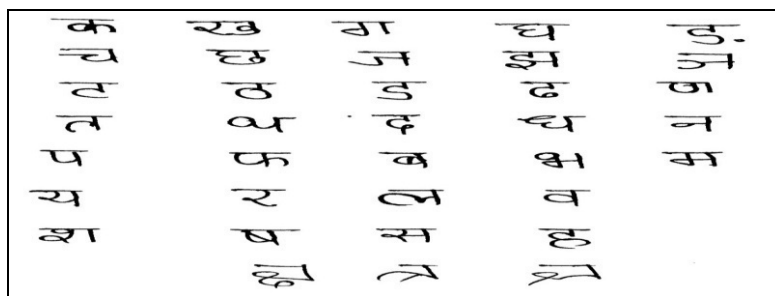 क ख ग घ ङ
च छ ज झ ञ
ट ठ ड ढ ण
त थ द ध न
प फ ब भ म
य र ल व
श ष स ह
क्ष त्र ज्ञ